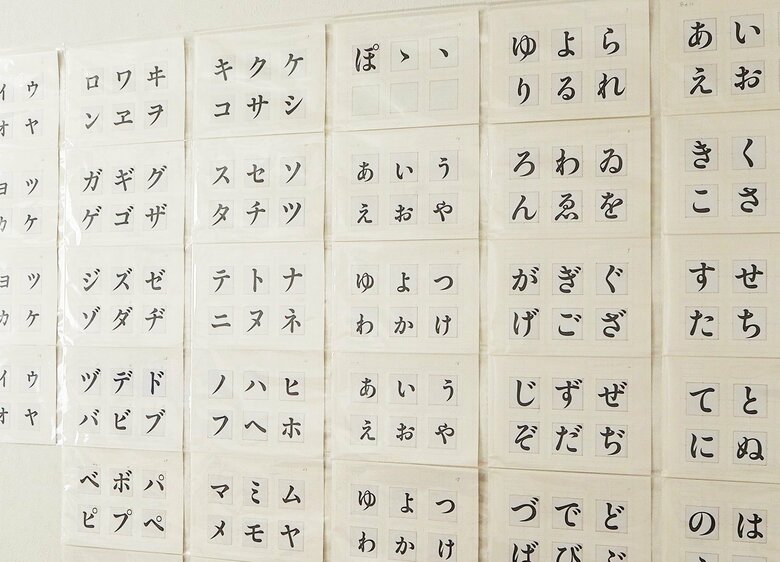 イ ウ
オ ヤ
ヨ ツ
カ ケ
ヨ ツ
カ ケ
イ ウ
オ ヤ
ロ ワ ヰ
ン ヱ ヲ
ガ ギ グ
ゲ ゴ ザ
ジ ズ ゼ
ゾ ダ ヂ
ヅ デ ド
バ ビ ブ
ベ ボ パ
ピ プ ペ
キ ク ケ
コ サ シ
ス セ ソ
タ チ ツ
テ ト ナ
ニ ヌ ネ
ノ ハ ヒ
フ ヘ ホ
マ ミ ム
メ モ ヤ
ぽ ゝ ヽ
あ い う
え お や
ゆ よ つ
わ か け
あ い う
え お や
ゆ よ つ
わ か け
ゆ よ ら
り る れ
ろ わ ゐ
ん ゑ を
が ぎ ぐ
げ ご ざ
じ ず ぜ
ぞ だ ぢ
づ で ど
ば び
あ い
え お
き く
こ さ
す せ
た ち
て と
に ぬ
の は